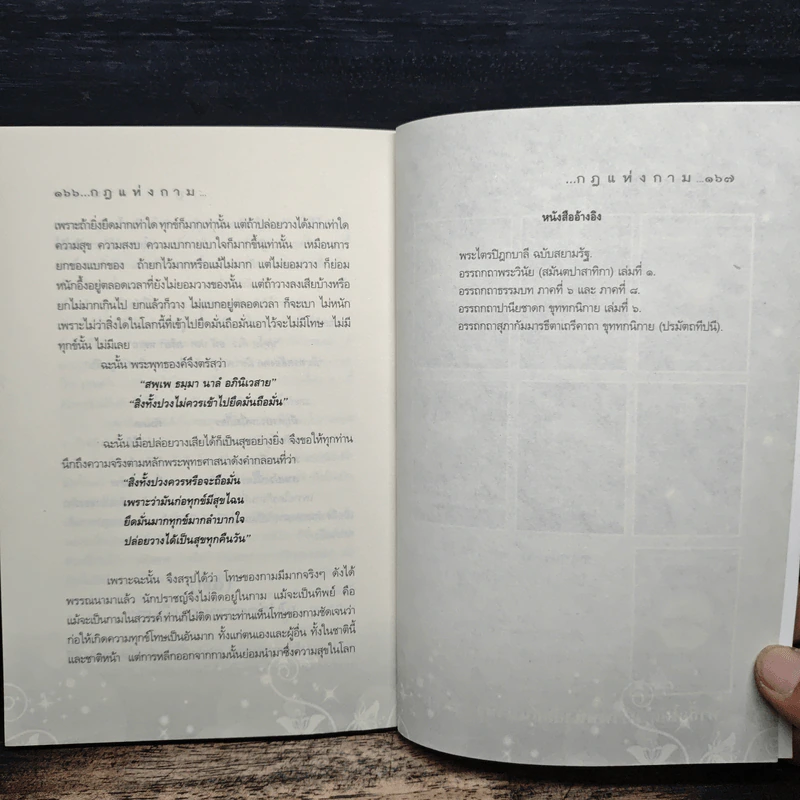 ๑๖๖...กฎแห่งกาม...
เพราะถ้ายิ่งยึดมากเท่าใด ทุกข์ก็มากเท่านั้น แต่ถ้าปล่อยวางได้มากเท่าใด
ความสุข ความสงบ ความเบากายเบาใจก็มากขึ้นเท่านั้น เหมือนการ
ยกของแบกของ ถ้ายกไว้มากหรือแม้ไม่มาก แต่ไม่ยอมวาง ก็ย่อม
หนักอึ้งอยู่ตลอดเวลาที่ยังไม่ยอมวางของนั้น แต่ถ้าวางลงเสียบ้างหรือ
ยกไม่มากเกินไป ยกแล้วก็วาง ไม่แบกอยู่ตลอดเวลา ก็จะเบา ไม่หนัก
เพราะไม่ว่าสิ่งใดในโลกนี้ที่เข้าไปยึดมั่นถือมั่นเอาไว้จะไม่มีโทษ ไม่มี
ทุกข์นั้น ไม่มีเลย
ฉะนั้น พระพุทธองค์จึงตรัสว่า
"สพฺเพ ธมฺมา นาลํ อภินิเวสาย"
"สิ่งทั้งปวงไม่ควรเข้าไปยึดมั่นถือมั่น"
ฉะนั้น เมื่อปล่อยวางเสียได้ก็เป็นสุขอย่างยิ่ง จึงขอให้ทุกท่าน
นึกถึงความจริงตามหลักพระพุทธศาสนาดังคำกลอนที่ว่า
"สิ่งทั้งปวงควรหรือจะถือมั่น
เพราะว่ามันก่อทุกข์มีสุขไฉน
ยึดมั่นมากทุกข์มากลำบากใจ
ปล่อยวางได้เป็นสุขทุกคืนวัน"
เพราะฉะนั้น จึงสรุปได้ว่า โทษของกามมีมากจริงๆ ดังได้
พรรณนามาแล้ว นักปราชญ์จึงไม่ติดอยู่ในกาม แม้จะเป็นทิพย์ คือ
แม้จะเป็นกามในสวรรค์ ท่านก็ไม่ติด เพราะท่านเห็นโทษของกามชัดเจนว่า
ก่อให้เกิดความทุกข์โทษเป็นอันมาก ทั้งแก่ตนเองและผู้อื่น ทั้งในชาตินี้
และชาติหน้า แต่การหลีกออกจากกามนั้นย่อมนำมาซึ่งความสุขในโลก
...กฎแห่งกาม...๑๖๗
หนังสืออ้างอิง
พระไตรปิฎกบาลี ฉบับสยามรัฐ.
อรรถกถาพระวินัย (สมันตปาสาทิกา) เล่มที่ ๑.
อรรถกถาธรรมบท ภาคที่ ๖ และ ภาคที่ ๘.
อรรถกถาปานียชาดก ขุททกนิกาย เล่มที่ ๖.
อรรถกถาสุภากัมมารธีตาเถรีคาถา ขุททกนิกาย (ปรมัตถทีปนี).